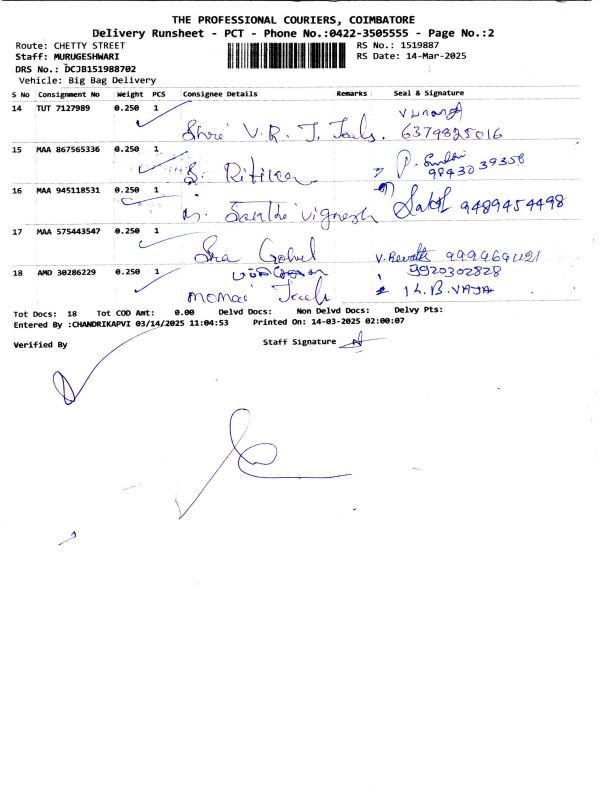 THE PROFESSIONAL COURIERS, COIMBATORE
Delivery Runsheet - PCT - Phone No.:0422-3505555 - Page No.:2
Route: CHETTY STREET RS No.: 1519887
Staff: MURUGESHWARI RS Date: 14-Mar-2025
DRS No.: DCJB151988702
Vehicle: Big Bag Delivery
S No Consignment No Weight PCS Consignee Details Remarks Seal & Signature
14 TUT 7127989 0.250 1
Shri V.R.J. Jeels. 6379825016
15 MAA 867565336 0.250 1
S. Ritika 9843039358
16 MAA 945118531 0.250 1
Santhe Vignesh 9489454498
17 MAA 575443547 0.250 1
V. Revathi
18 AMD 30286229 0.250 1 9920302828
momai Jeels L.B. VAJA
Tot Docs: 18 Tot COD Amt: 0.00 Delvd Docs: Non Delvd Docs: Delvy Pts:
Entered By :CHANDRIKAPVI 03/14/2025 11:04:53 Printed On: 14-03-2025 02:00:07
Verified By Staff Signature